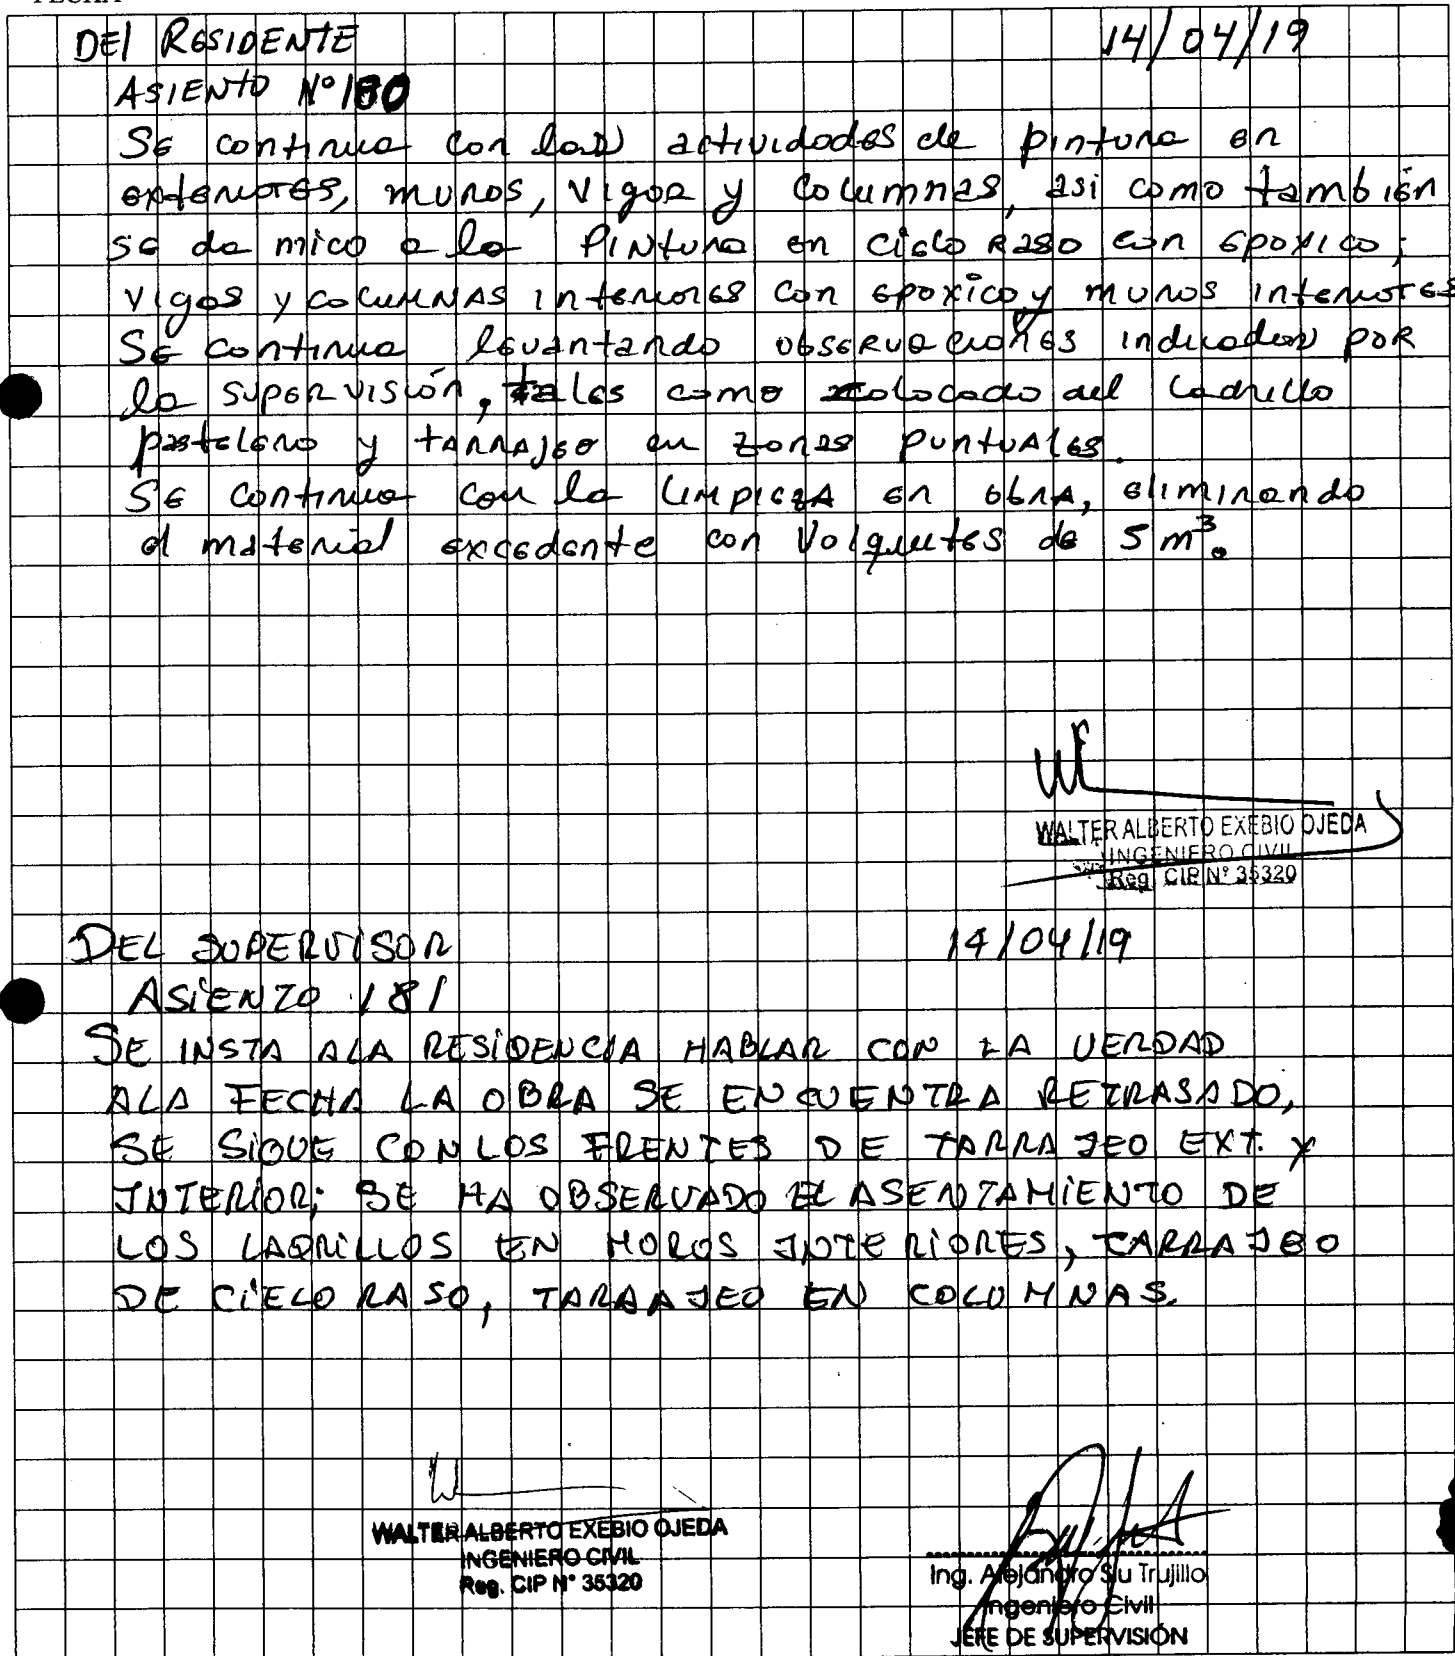 DEl RESIDENTE 14/04/19
ASIENTO N° 180
SE continua con las actividades de pintura en
exteriores, muros, vigas y columnas, asi como también
se da inico a la PINtura en cielo RASO con epoxico;
vigas y coluMNAS interiores con epoxico y muros interiores
SE continua levantando observaciones indicados POR
la SUPERVISIÓN, tales como colocado del Ladrillo
pastelero y tARRAJeo en zonas puntuAles.
SE continua con la LIMPIEZA en obRA, eliminando
el material excedente con Volquetes de 5 m³.
WALTER ALBERTO EXEBIO OJEDA
INGENIERO CIVIL
Reg. CIP N° 35320
DEL SUPERVISOR 14/04/19
ASiENTO 181
SE INSTA ALA RESiDENCIA HABLAR CON LA VERDAD
ALA FECHA LA OBRA SE ENCUENTRA RETRASADO,
SE SIGUE CON LOS FRENTES DE TARRAJEO EXT. Y
INTERIOR; SE HA OBSERVADO EL ASENTAMiENTO DE
LOS LADRiLLOS EN MUROS INTERIORES, TARRAJEO
DE CiELO RASO, TARRAJEO EN COLUMNAS.
WALTER ALBERTO EXEBIO OJEDA
INGENIERO CIVIL
Reg. CIP N° 35320
Ing. Alejandro Siu Trujillo
Ingeniero Civil
JEFE DE SUPERVISIÓN